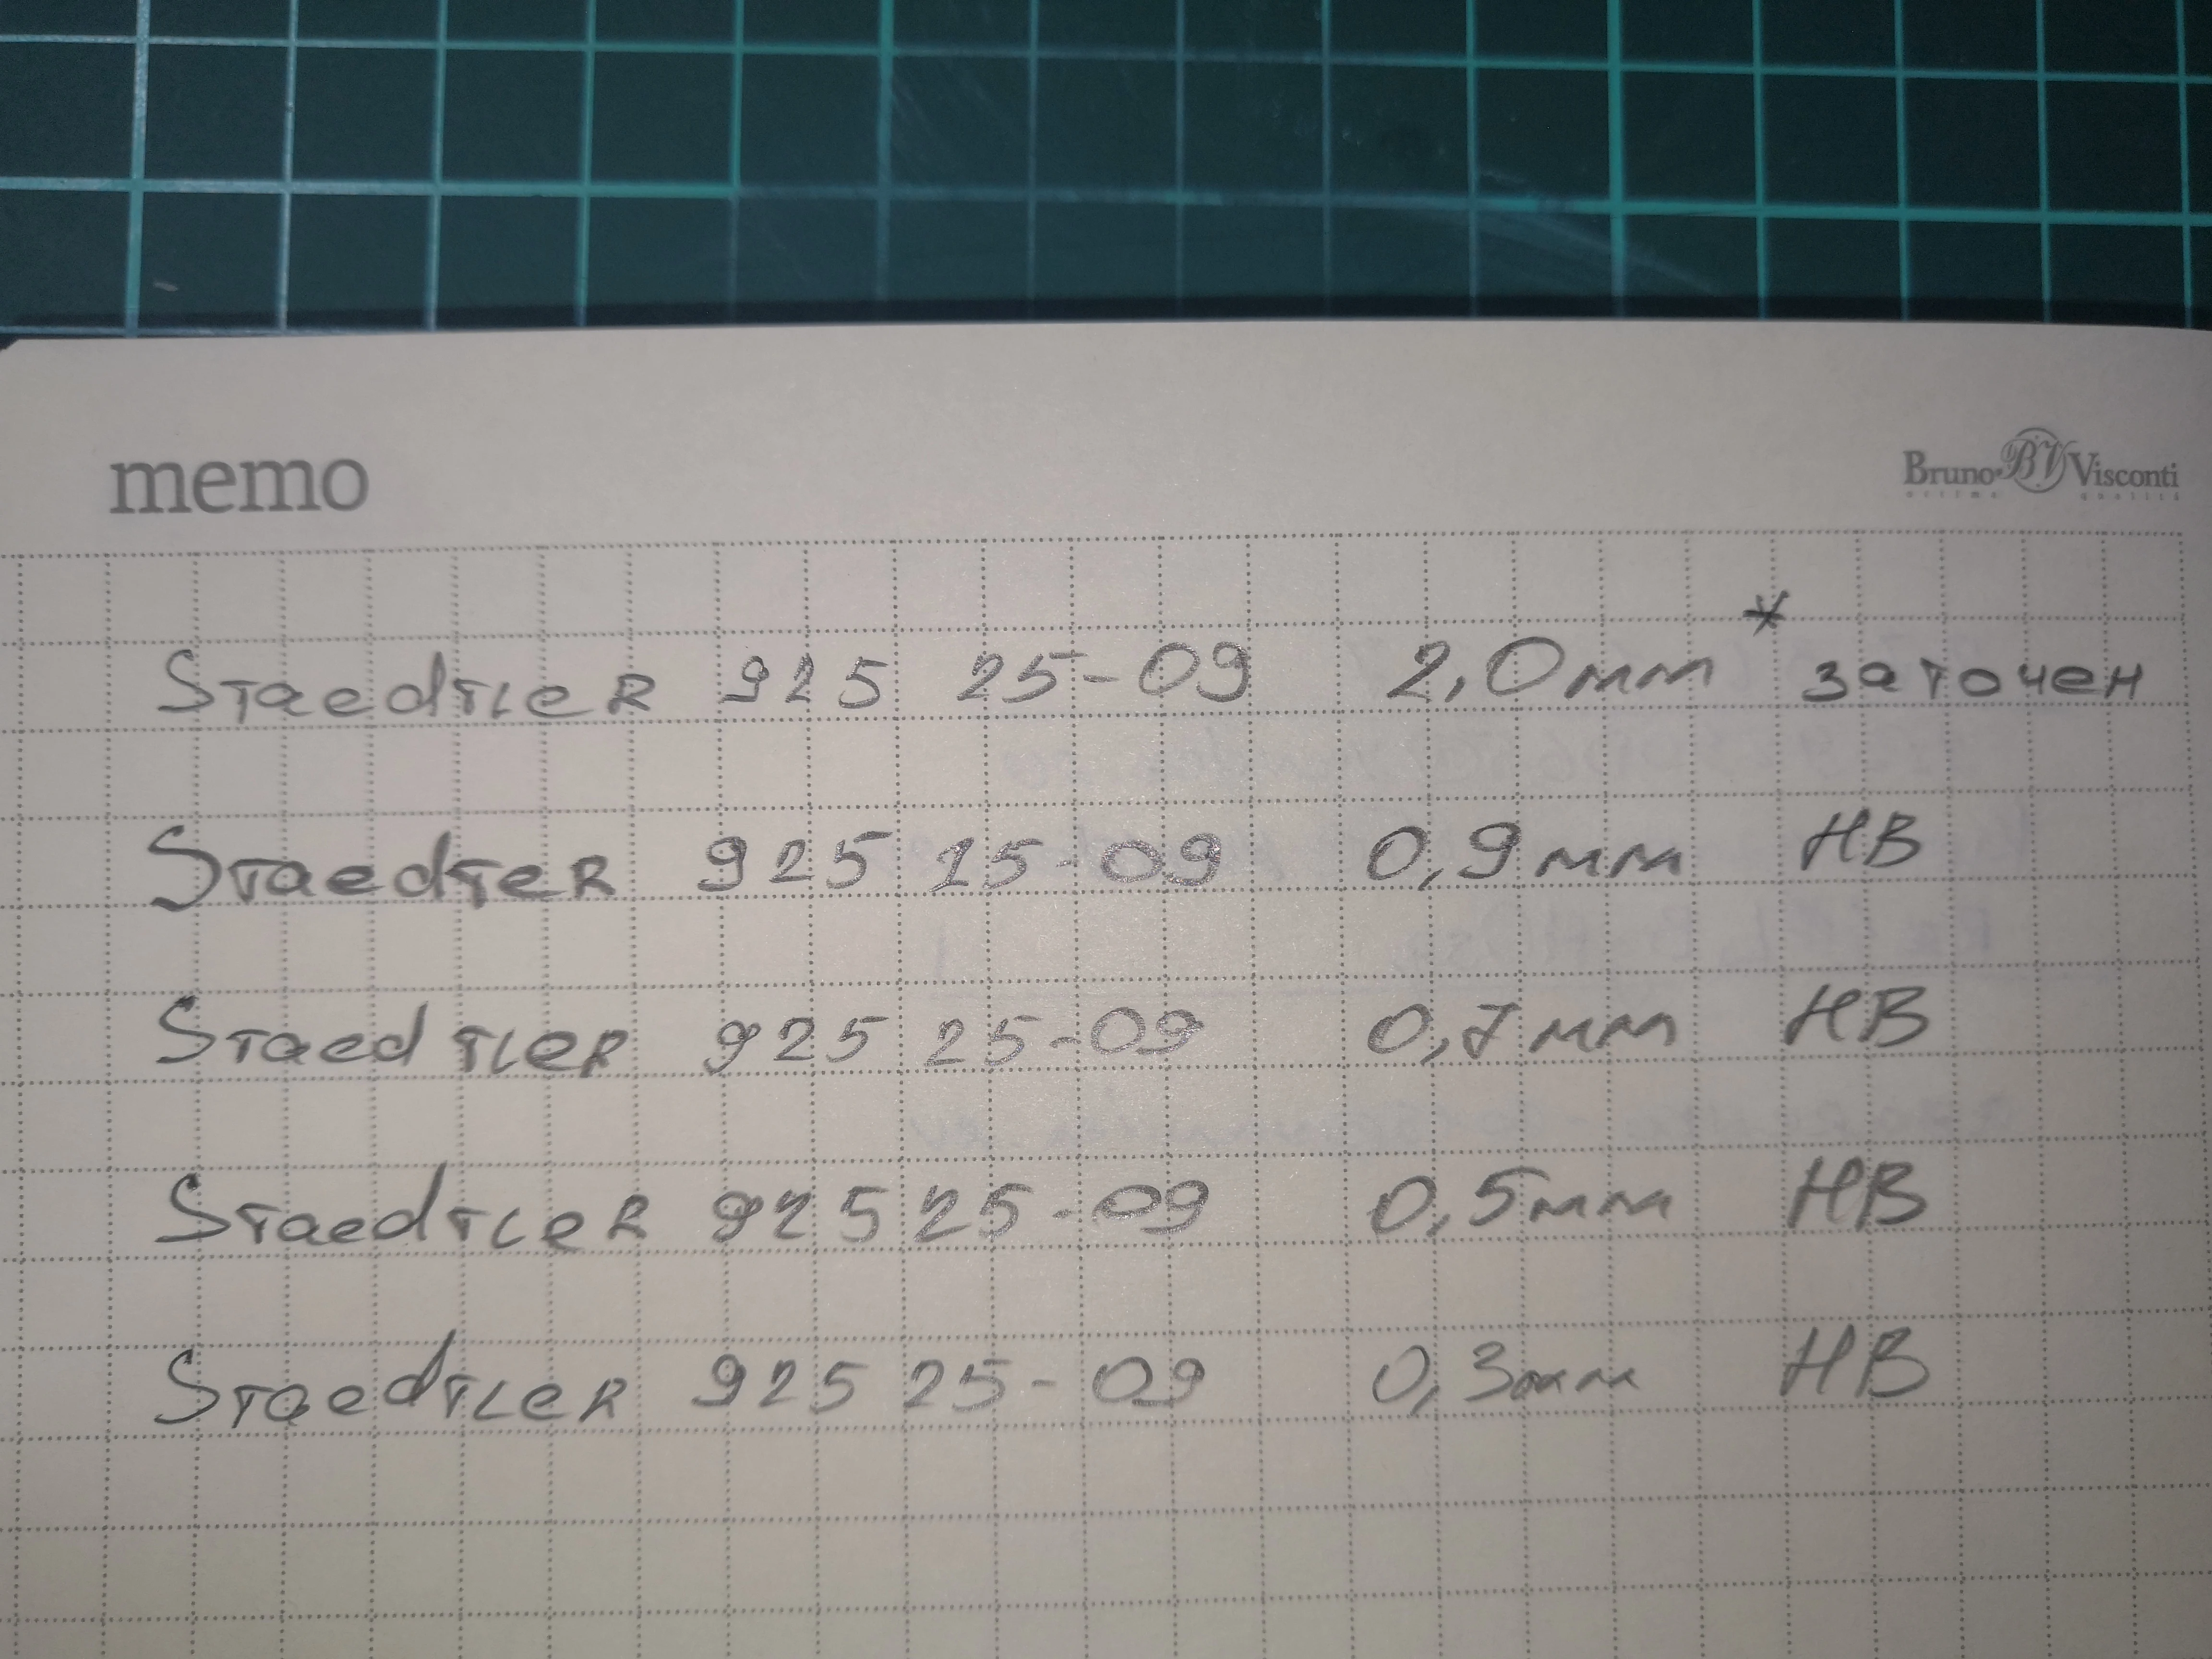 memo
Bruno BV Visconti
Staedtler 925 25-09 2,0мм * заточен
Staedter 925 25-09 0,9мм HB
Staedtler 925 25-09 0,7мм HB
Staedtler 925 25-09 0,5мм HB
Staedtler 925 25-09 0,3мм HB